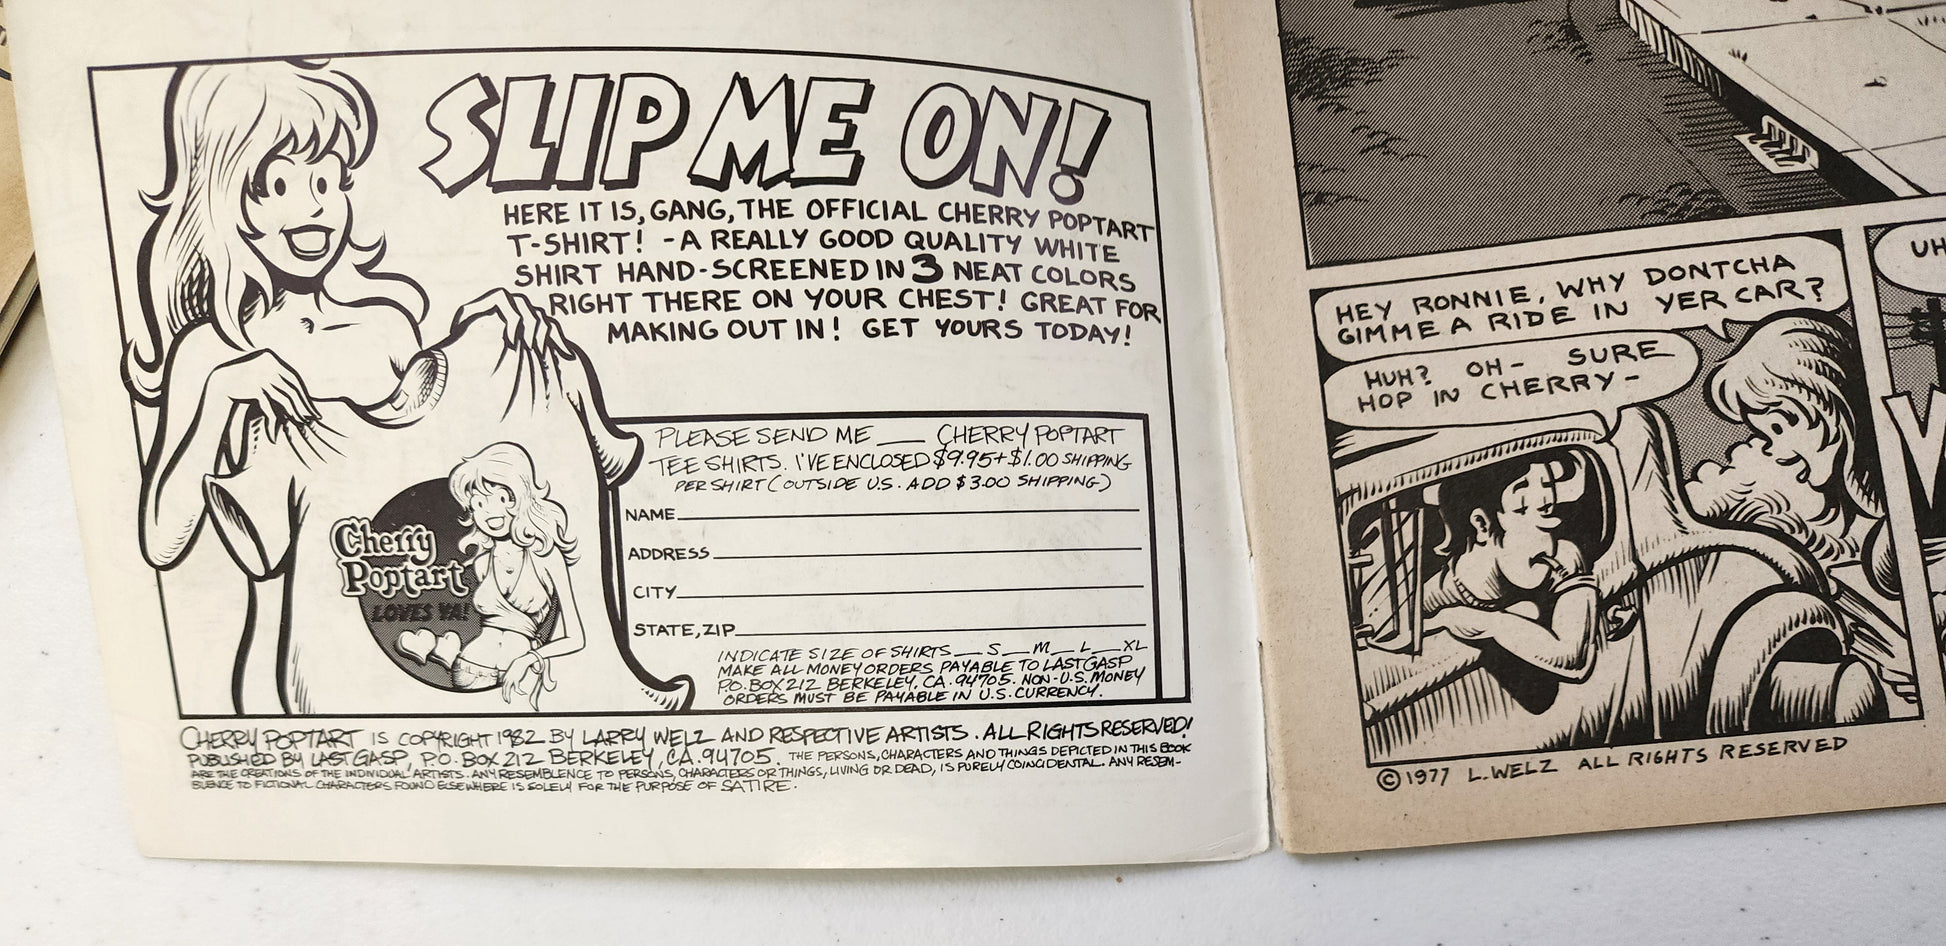 SLIP ME ON!
HERE IT IS, GANG, THE OFFICIAL CHERRY POPTART
T-SHIRT! -A REALLY GOOD QUALITY WHITE
SHIRT HAND-SCREENED IN 3 NEAT COLORS
RIGHT THERE ON YOUR CHEST! GREAT FOR
MAKING OUT IN! GET YOURS TODAY!
Cherry
Poptart
LOVES YA!
PLEASE SEND ME ___ CHERRY POPTART
TEE SHIRTS. I'VE ENCLOSED $9.95+$1.00 SHIPPING
PER SHIRT (OUTSIDE U.S. ADD $3.00 SHIPPING)
NAME
ADDRESS
CITY
STATE, ZIP
INDICATE SIZE OF SHIRTS __ S __ M __ L __ XL
MAKE ALL MONEY ORDERS PAYABLE TO LAST GASP
P.O. BOX 212 BERKELEY, CA. 94705. NON-U.S. MONEY
ORDERS MUST BE PAYABLE IN U.S. CURRENCY.
CHERRY POPTART IS COPYRIGHT 1982 BY LARRY WELZ AND RESPECTIVE ARTISTS. ALL RIGHTS RESERVED!
PUBLISHED BY LAST GASP, P.O. BOX 212 BERKELEY, CA. 94705. THE PERSONS, CHARACTERS AND THINGS DEPICTED IN THIS BOOK
ARE THE CREATIONS OF THE INDIVIDUAL ARTISTS. ANY RESEMBLENCE TO PERSONS, CHARACTERS OR THINGS, LIVING OR DEAD, IS PURELY COINCIDENTAL. ANY RESEM-
BLENCE TO FICTIONAL CHARACTERS FOUND ELSEWHERE IS SOLELY FOR THE PURPOSE OF SATIRE.
HEY RONNIE, WHY DONTCHA
GIMME A RIDE IN YER CAR?
HUH? OH- SURE
HOP IN CHERRY-
UH
© 1977 L. WELZ ALL RIGHTS RESERVED